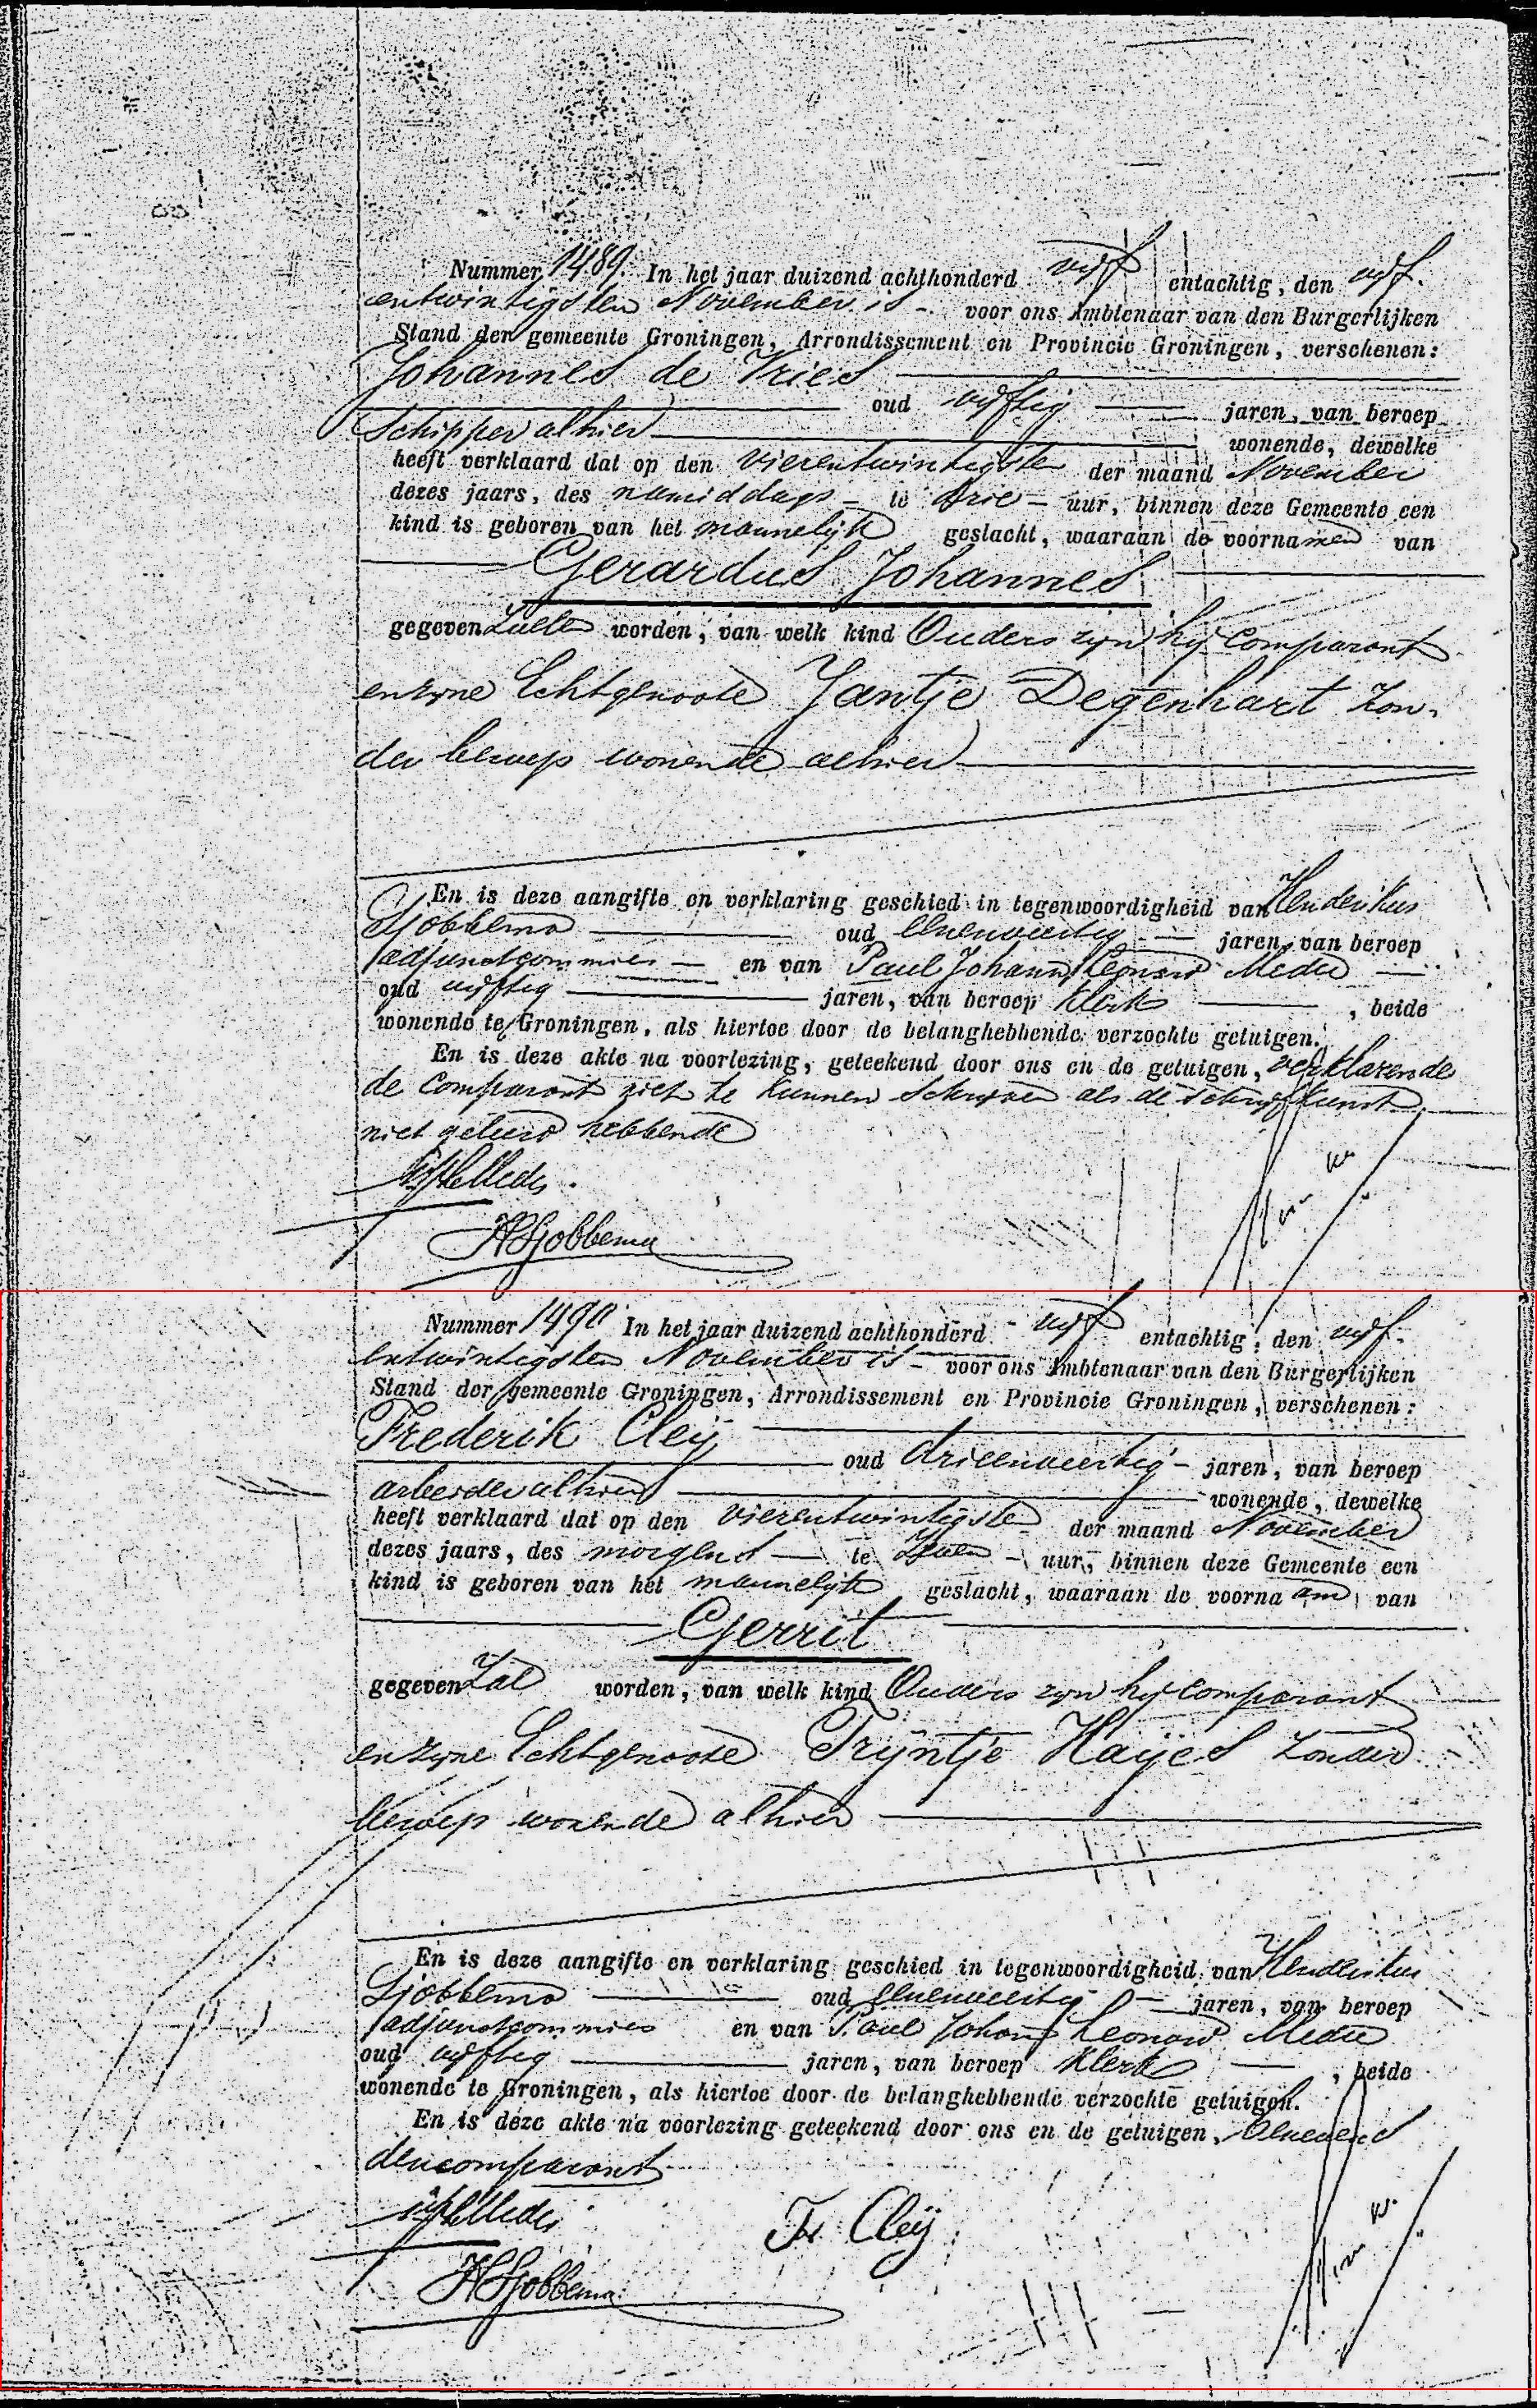 Nummer 1489. In het jaar duizend achthonderd vijf entachtig, den vijf-
entwintigsten November is - voor ons Ambtenaar van den Burgerlijken
Stand der gemeente Groningen, Arrondissement en Provincie Groningen, verschenen:
Johannes de Vries
oud vijftig jaren, van beroep
Schipper alhier wonende, dewelke
heeft verklaard dat op den vierentwintigsten der maand November
dezes jaars, des namiddags te drie uur, binnen deze Gemeente een
kind is geboren van het mannelijk geslacht, waaraan de voornamen van
Gerardus Johannes
gegeven zullen worden, van welk kind Ouders zijn hij Comparant
en zijne Echtgenoote Jantje Degenhart zon-
der beroep wonende alhier
En is deze aangifte en verklaring geschied in tegenwoordigheid van Hendrikus
Sjobbema oud eenenveertig jaren, van beroep
adjunctcommies en van Paul Johann Leonard Meder
oud vijftig jaren, van beroep klerk, beide
wonende te Groningen, als hiertoe door de belanghebbende verzochte getuigen.
En is deze akte na voorlezing, geteekend door ons en de getuigen, verklarende
de Comparant niet te kunnen schrijven als de schrijfkunst
niet geleerd hebbende
HSjobbema
Nummer 1490 In het jaar duizend achthonderd vijf entachtig, den vijf-
entwintigsten November is - voor ons Ambtenaar van den Burgerlijken
Stand der gemeente Groningen, Arrondissement en Provincie Groningen, verschenen:
Frederik Cleij
oud drieenveertig - jaren, van beroep
arbeider alhier wonende, dewelke
heeft verklaard dat op den vierentwintigsten der maand November
dezes jaars, des morgens te zeven uur, binnen deze Gemeente een
kind is geboren van het mannelijk geslacht, waaraan de voornaam van
Gerrit
gegeven zal worden, van welk kind Ouders zijn hij comparant
en zijne Echtgenoote Trijntje Haijes zonder
beroep wonende alhier
En is deze aangifte en verklaring geschied in tegenwoordigheid van Hendrikus
Sjobbema oud eenenveertig jaren, van beroep
adjunctcommies en van Paul Johann Leonard Meder
oud vijftig jaren, van beroep klerk, beide
wonende te Groningen, als hiertoe door de belanghebbende verzochte getuigen.
En is deze akte na voorlezing geteekend door ons en de getuigen, benevens
den comparant
Fr Cleij
HSjobbema